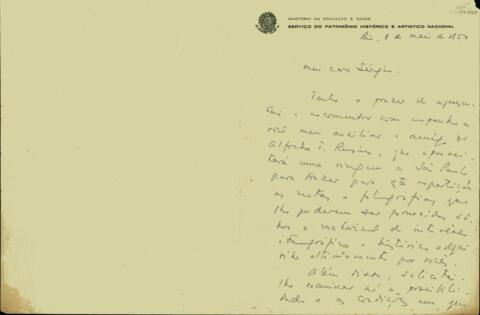 MINISTÉRIO DA EDUCAÇÃO E SAÚDE
SERVIÇO DO PATRIMÔNIO HISTÓRICO E ARTÍSTICO NACIONAL
Rio, 8 de maio de 1950
Meu caro Sérgio.
Tenho o prazer de apresen-
tar e recomendar com empenho a
você meu auxiliar e amigo Dr
Alfredo T. Rusins, que aprovei-
tará uma viagem a São Paulo
para trazer para esta repartição
as notas e photografias que
lhe puderem ser fornecidas so-
bre o material de interêsse
etnográfico e histórico adqui-
rido ultimamente por vocês.
Além disso, solicitei-
lhe examinar aí a possibili-
dade e as condições em que